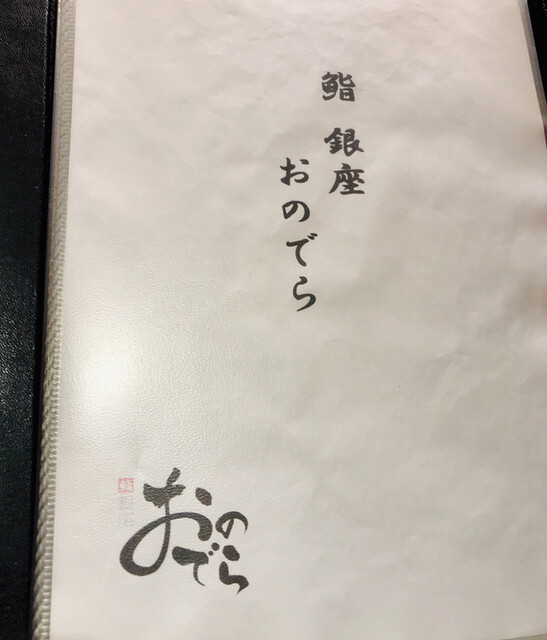 鮨 銀座
おのでら
おのでら